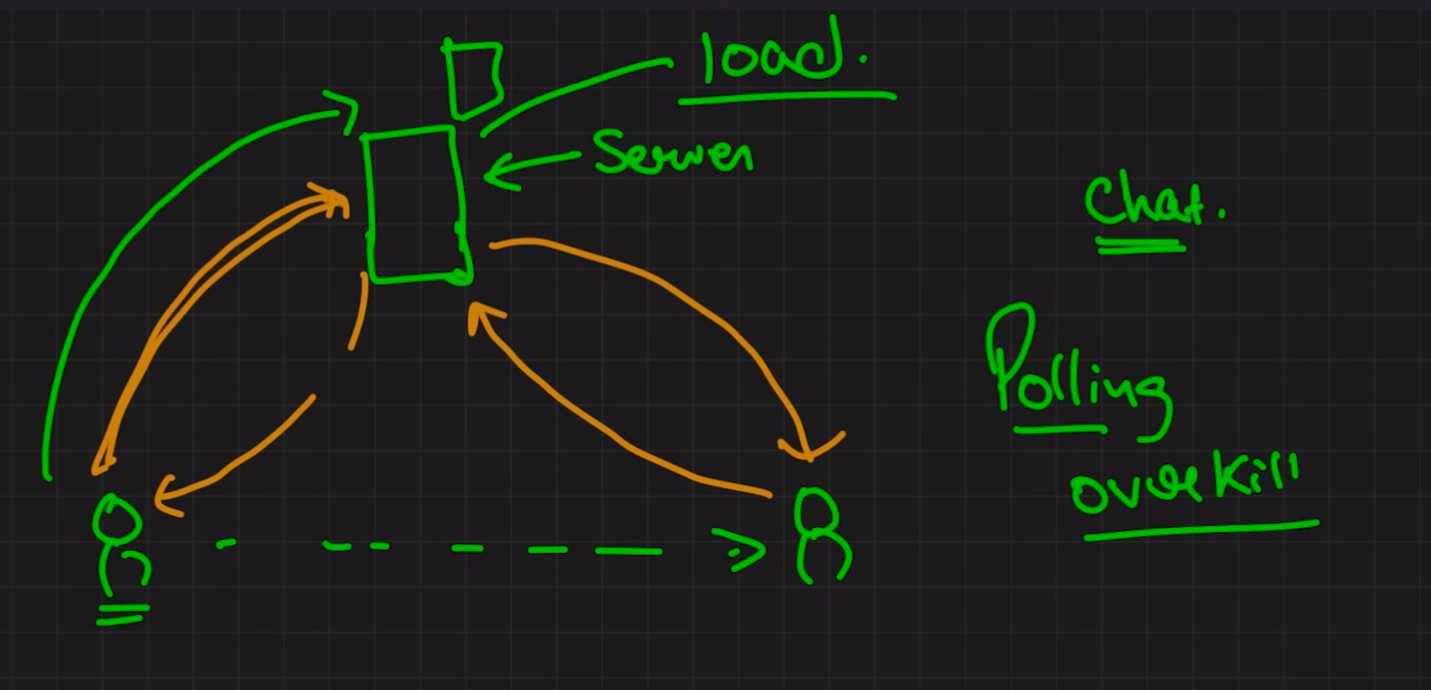 load.
Server
Chat.
Polling
overkill